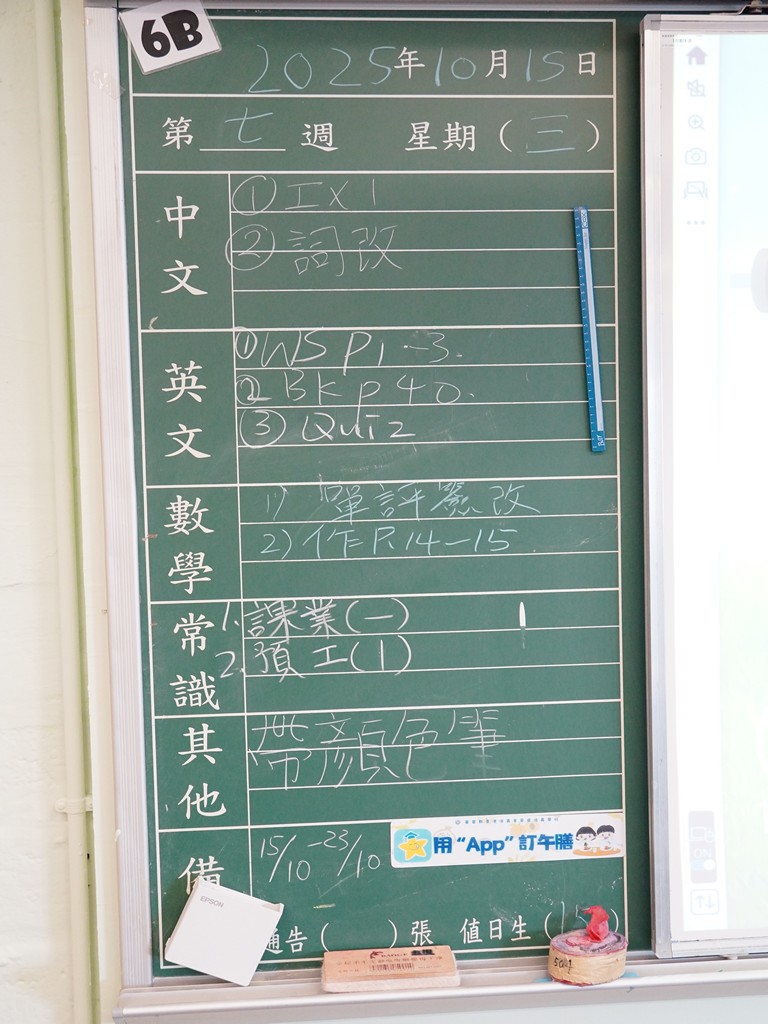 6B
2025年10月15日
第七週 星期(三)
中文
① 工X1
② 詞改
英文
① WS P1-3.
② BK P40.
③ Quiz
數學
1) 單評簽改
2) 作P.14-15
常識
1. 課業(一)
2. 預工(1)
其他
帶顏色筆
備
15/10-23/10
用“App”訂午膳
EPSON
通告( )張 值日生(